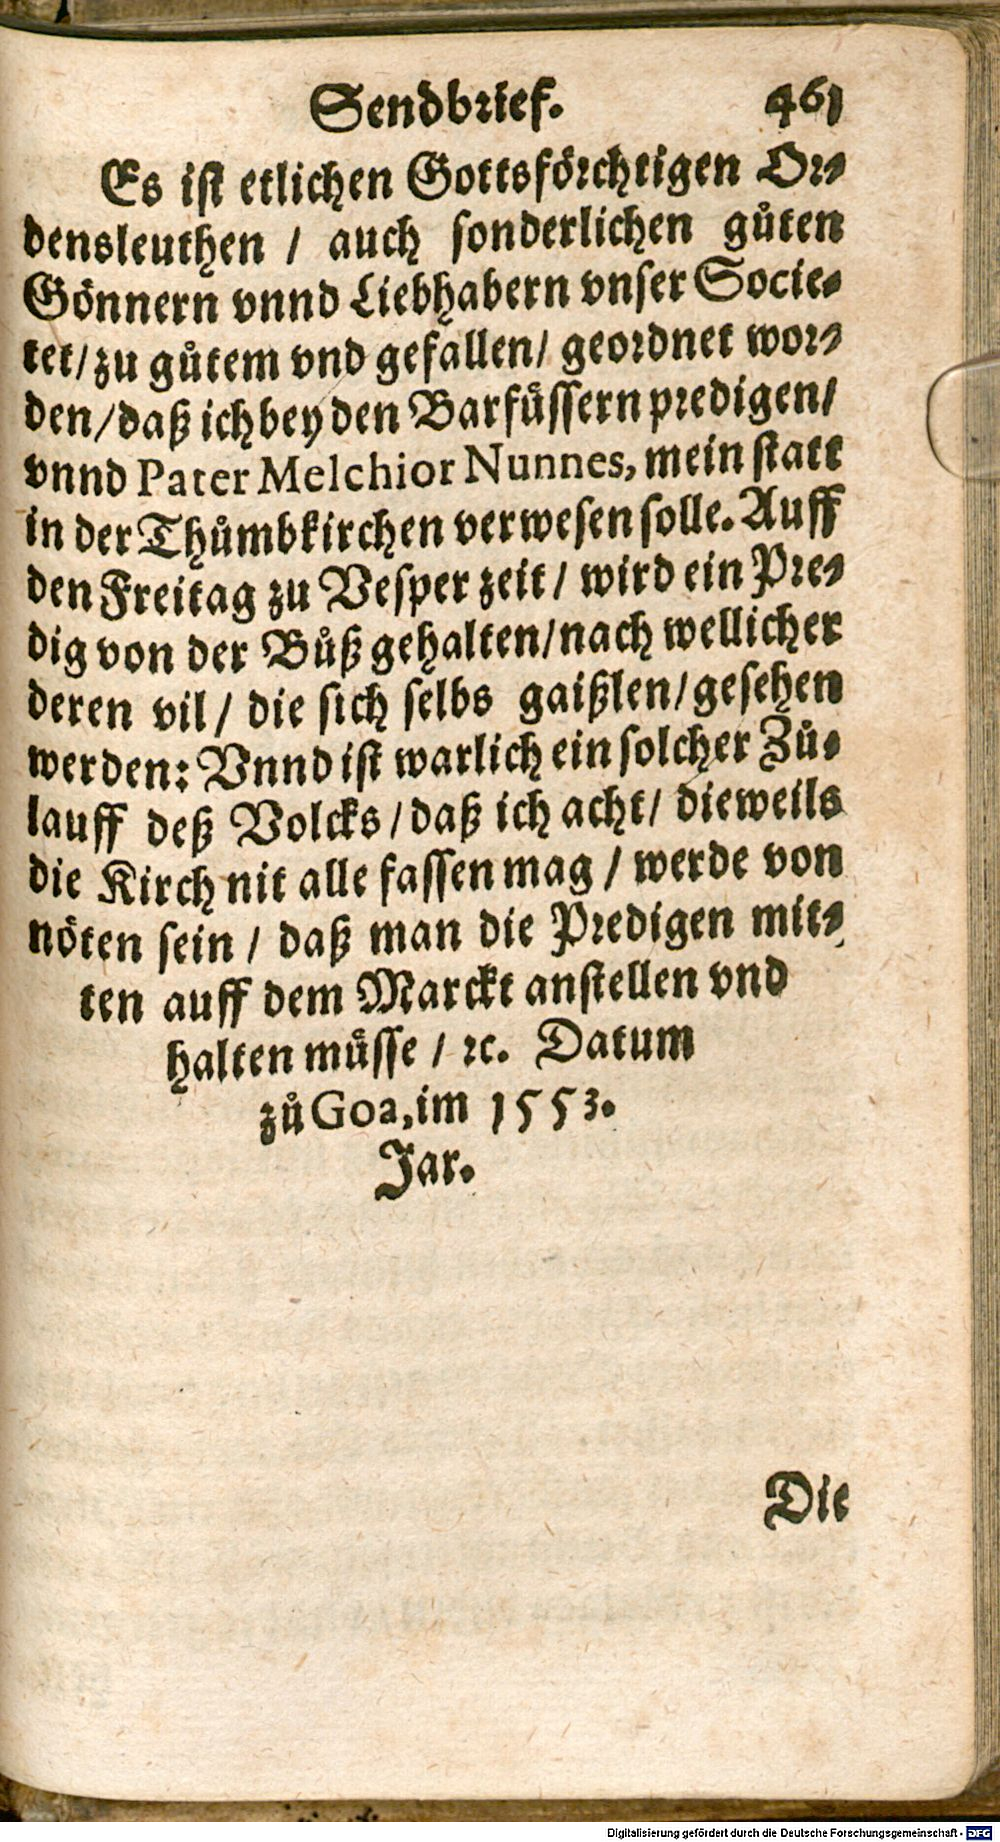 Sendbrief. 461
Es ist etlichen Gottsförchtigen Or-
densleuthen / auch sonderlichen gůten
Gönnern vnnd Liebhabern vnser Socie-
tet / zu gůtem vnd gefallen / geordnet wor-
den / daß ich bey den Barfüssern predigen /
vnnd Pater Melchior Nunnes, mein statt
in der Thůmbkirchen verwesen solle. Auff
den Freitag zu Vesper zeit / wird ein Pre-
dig von der Bůß gehalten / nach wellicher
deren vil / die sich selbs gaißlen / gesehen
werden: Vnnd ist warlich ein solcher Zů-
lauff deß Volcks / daß ich acht / dieweils
die Kirch nit alle fassen mag / werde von
nöten sein / daß man die Predigen mit-
ten auff dem Marckt anstellen vnd
halten müsse / ꝛc. Datum
zů Goa, im 1553.
Jar.
Die
Digitalisierung gefördert durch die Deutsche Forschungsgemeinschaft - DFG